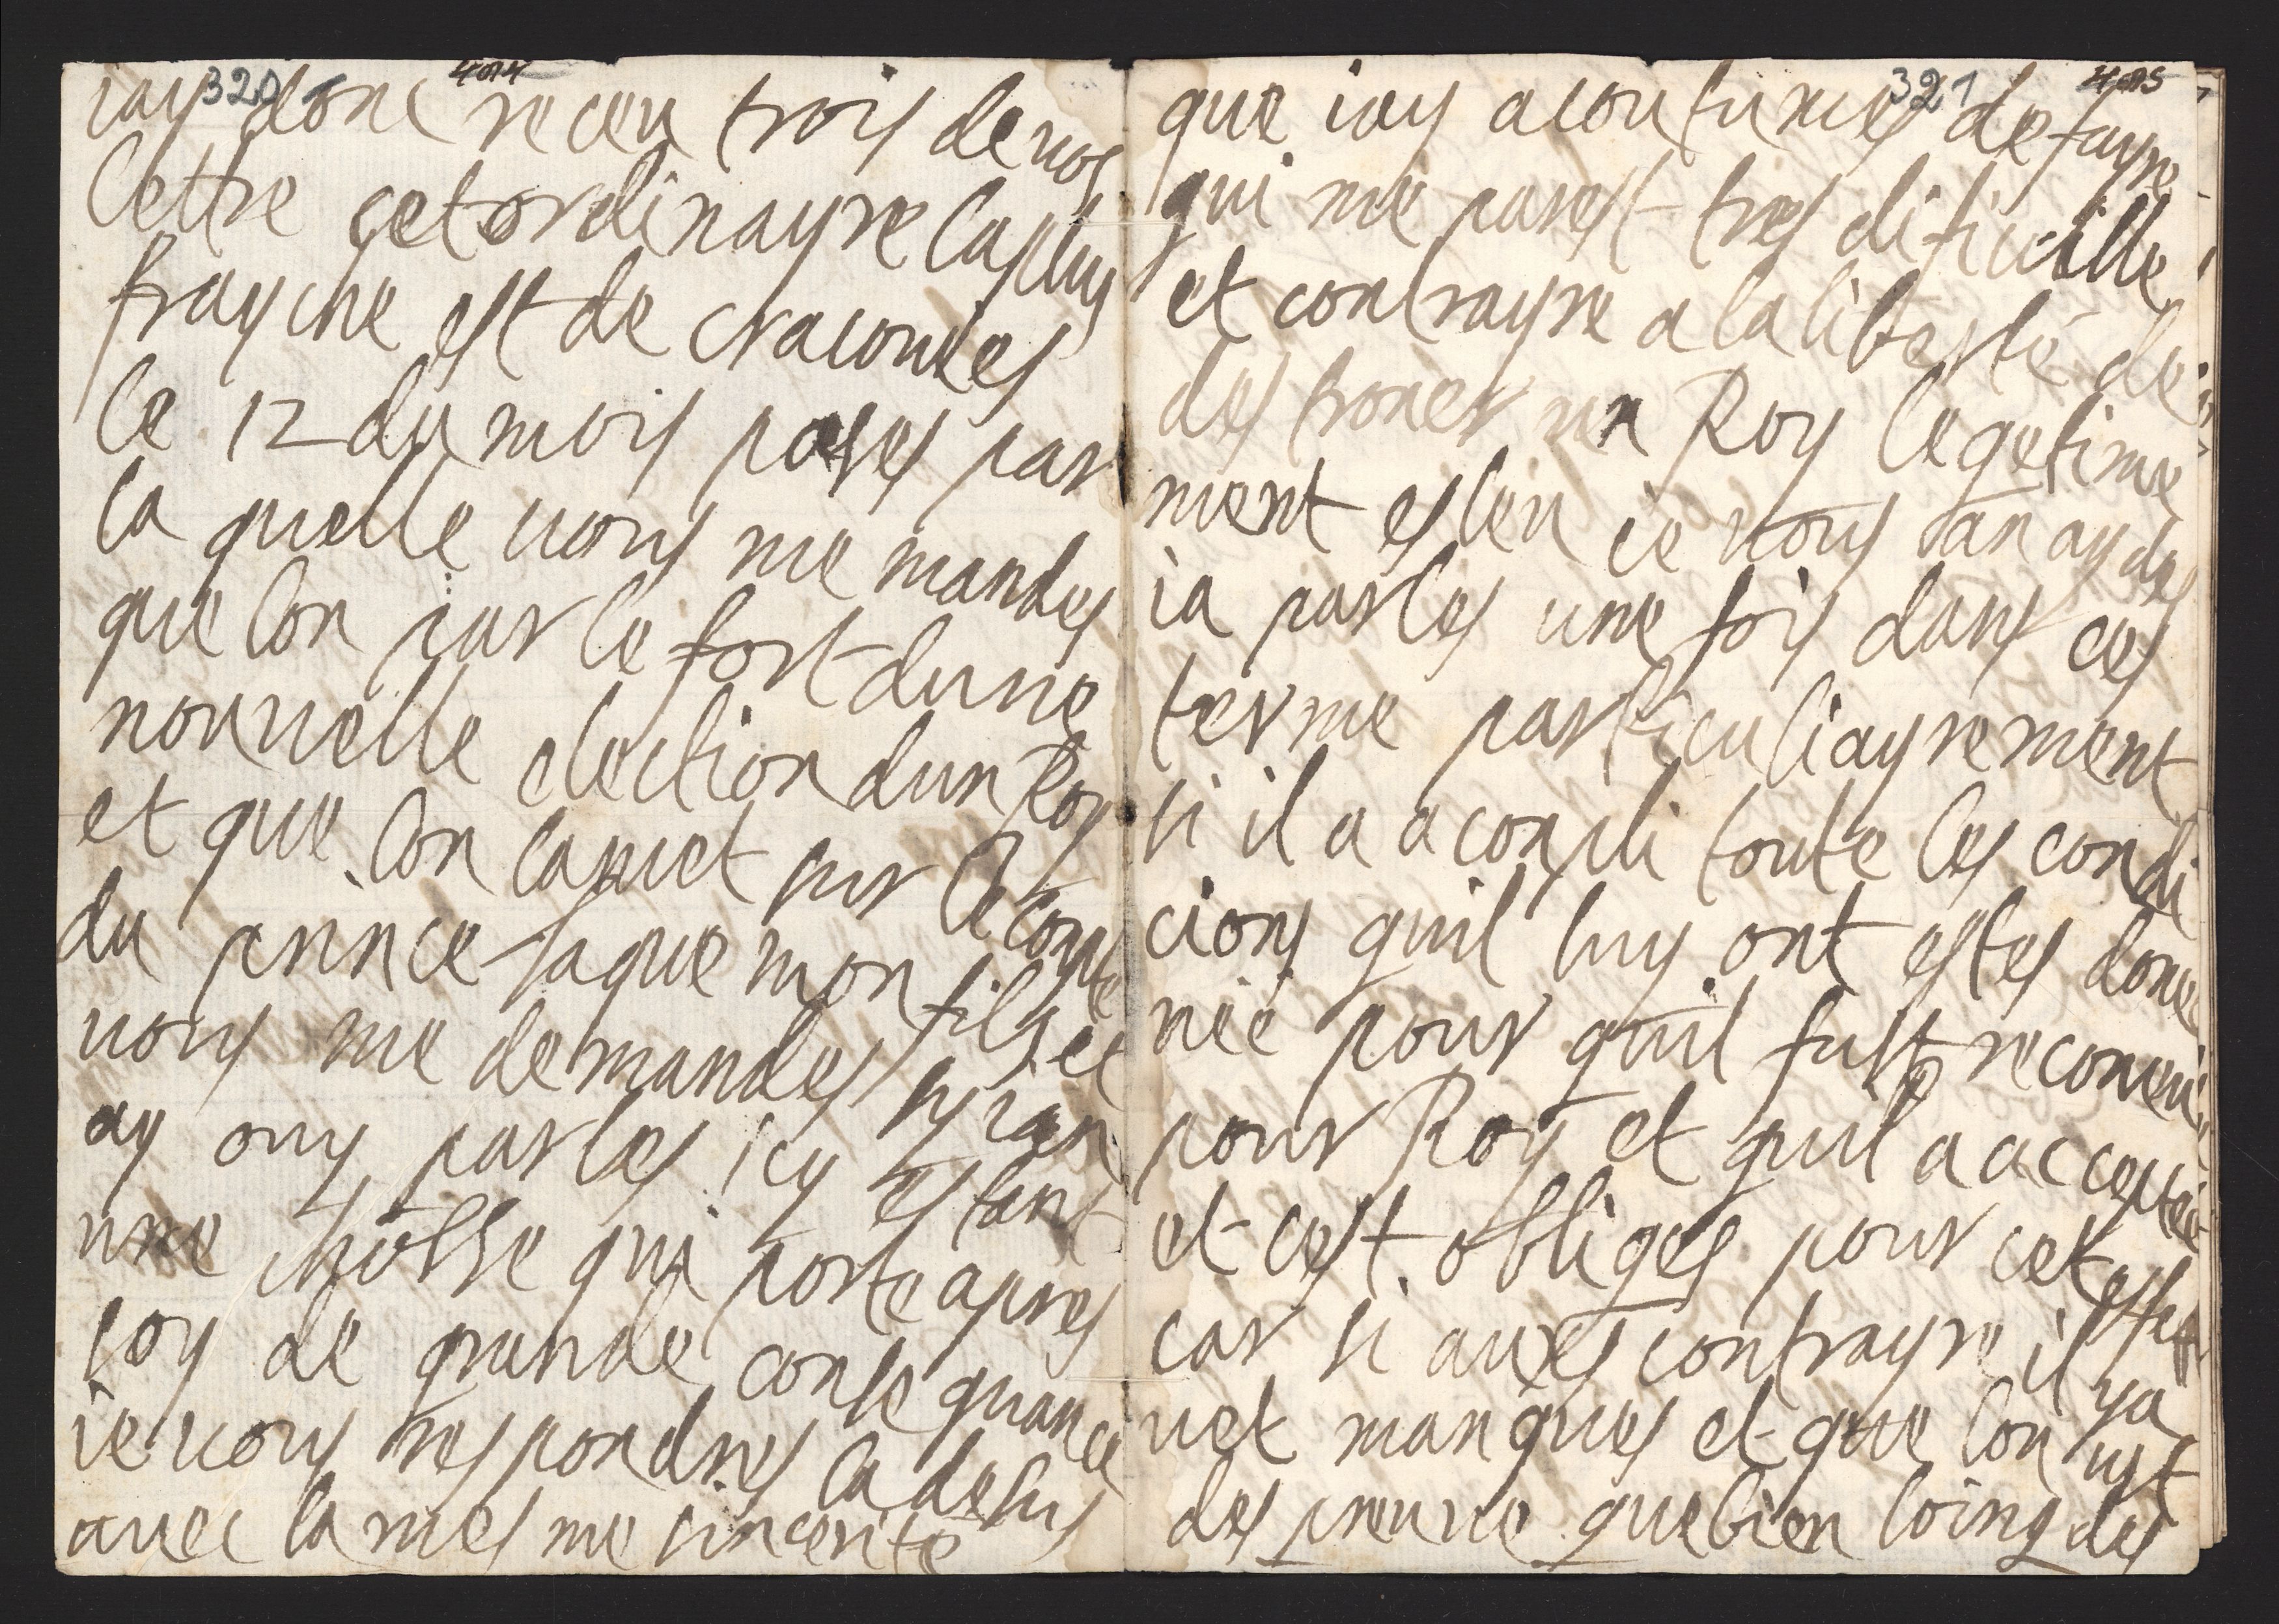 320 404
iay donc receu trois de vos
lettre cet ordinayre la plus
frayche est de cracouies
le 12 du mois pases par
la quelle vous me mandes
que lon parle fort dune
nouvelle election dun Roy
et que lon la met sur le conte
du prince Jaque mon fils et
vous me demandes sy ian
ay ouy parles icy estant
une chosse qui porte apres
soy de grande consequance
ie vous respondres la desus
avec la mesme sincerité
321 405
que iay acoutumes de fayre
qui me parest tres dificille
et contrayre a la liberté de
destroner un Roy legetime
ment esleu ie vous an ay des
ia parles une fois dans ces
terme particuliayrement
si il a aconpli toute les condi
cions quil luy ont estes donn
née pour quil fust reconnu
pour Roy et quil a acceptée
et cest obliges pour cet effet
car si aux contrayre il ya
uet manques et que lon ust
des preuve que bien loing des